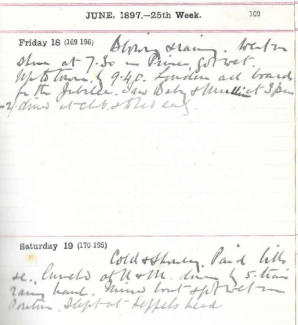 JUNE, 1897.—25th Week. 169
Friday 18 (169 196) Blowing & rainy. Went on
shore at 7.30 in Prince, got wet.
Up to town by 9.40. London all boards
for the Jubilee. Saw Baby & at 3 pm
dined at club & to bed early.
Saturday 19 (170-195) Cold & showery. Paid bills
&c., lunched at N & M. down by 5. train
rainy hard. boat got wet in
Pontoon. Slept at Keppels Head